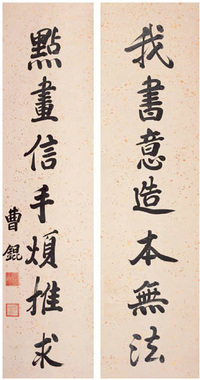 我書意造本無法
點畫信手煩推求
曹錕